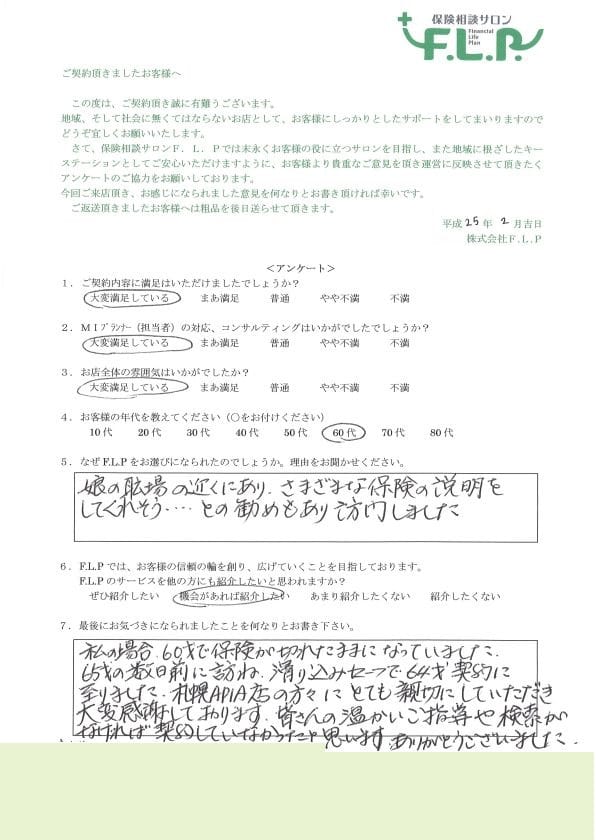 保険相談サロン
F.L.P.
Financial
Life
Plan
ご契約頂きましたお客様へ
この度は、ご契約頂き誠に有難うございます。
地域、そして社会に無くてはならないお店として、お客様にしっかりとしたサポートをしてまいりますので
どうぞ宜しくお願いいたします。
さて、保険相談サロンF.L.Pでは末永くお客様の役に立つサロンを目指し、また地域に根ざしたキー
ステーションとしてご安心いただけますように、お客様より貴重なご意見を頂き運営に反映させて頂きたく
アンケートのご協力をお願いしております。
今回ご来店頂き、お感じになられました意見を何なりとお書き頂ければ幸いです。
ご返送頂きましたお客様へは粗品を後日送らせて頂きます。
平成 25 年 2 月吉日
株式会社F.L.P
＜アンケート＞
1．ご契約内容に満足はいただけましたでしょうか？
大変満足している まあ満足 普通 やや不満 不満
2．MIプランナー（担当者）の対応、コンサルティングはいかがでしたでしょうか？
大変満足している まあ満足 普通 やや不満 不満
3．お店全体の雰囲気はいかがでしたか？
大変満足している まあ満足 普通 やや不満 不満
4．お客様の年代を教えてください（○をお付けください）
10代 20代 30代 40代 50代 60代 70代 80代
5．なぜF.L.Pをお選びになられたのでしょうか。理由をお聞かせください。
娘の職場の近くにあり、さまざまな保険の説明を
してくれそう‥‥との勧めもあり訪問しました
6．F.L.Pでは、お客様の信頼の輪を創り、広げていくことを目指しております。
F.L.Pのサービスを他の方にも紹介したいと思われますか？
ぜひ紹介したい 機会があれば紹介したい あまり紹介したくない 紹介したくない
7．最後にお気づきになられましたことを何なりとお書き下さい。
私の場合、60才で保険が切れたままになっていました。
65才の数日前に訪ね、滑り込みセーフで64才契約に
至りました。札幌APIA店の方々にとても親切にしていただき
大変感謝しております。皆さんの温かいご指導や検索が
なければ契約していなかったと思います。ありがとうございました。